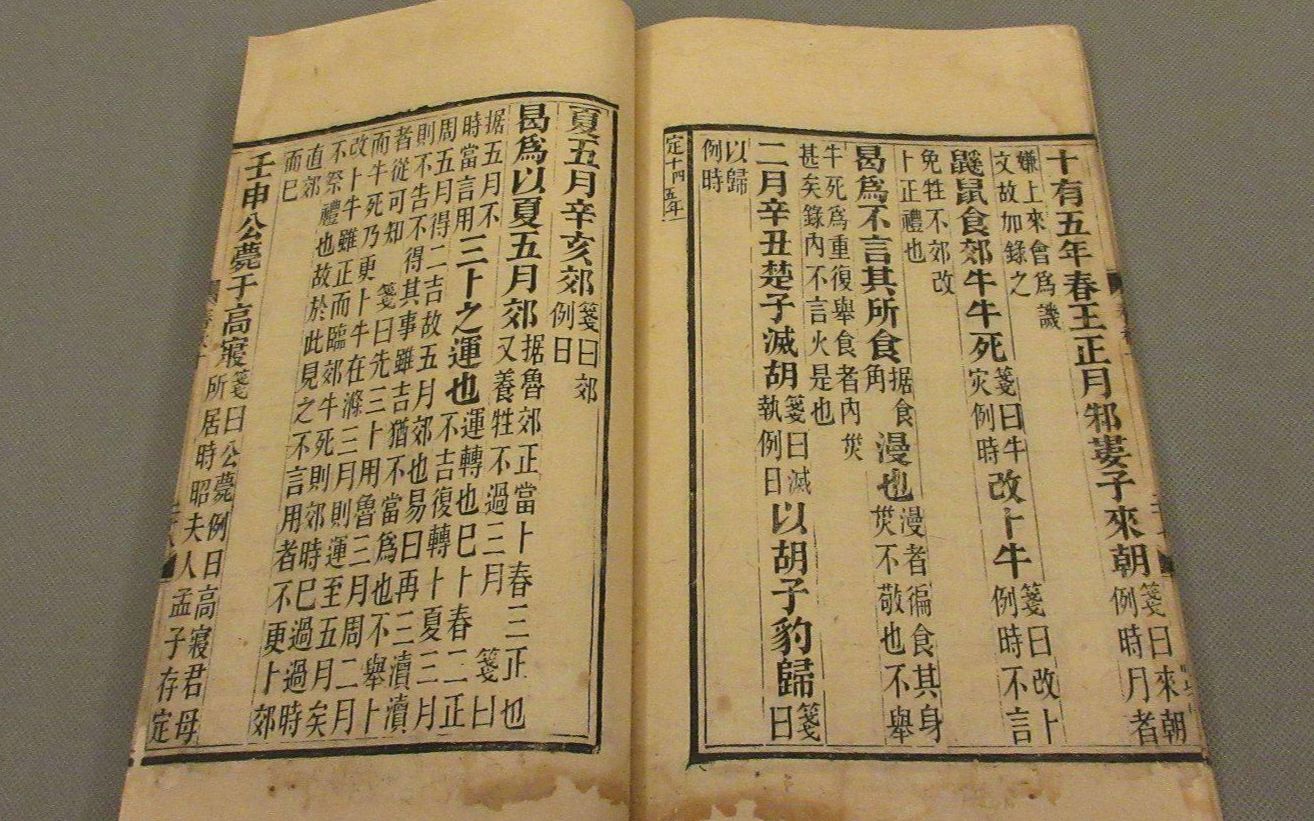 十有五年春王正月邾婁子來朝箋曰來朝例時月者
嫌上來會爲譏
文故加錄之
鼷鼠食郊牛牛死箋曰牛灾例時改卜牛箋曰改卜例時不言
免牲不郊改
卜正禮也
曷爲不言其所食据食角漫也漫者徧食其身烖不敬也不舉
牛死爲重復舉食者內烖
甚矣錄內不言火是也
二月辛丑楚子滅胡箋曰滅執例日以胡子豹歸箋曰
以歸
例時
定十四五年
夏五月辛亥郊箋曰郊例日
曷爲以夏五月郊据魯郊正當卜春三正也又養牲不過三月箋曰
据五月不時當言用三卜之運也運轉也巳卜春三正不吉復轉卜夏三月
周五月得二吉故五月郊也易曰再三瀆瀆
則不告不得其事雖吉猶不當爲也不舉卜
者從可知箋曰先三卜用魯三月周二月
而牛死乃更卜牛在滌三月則運至五月矣
改卜牛雖正而臨郊牛死則郊時巳過過時
不祭禮也故於此見之不言用者不更卜郊
直郊
而巳
壬申公薨于高寢箋曰公薨例日高寢君母所居時昭夫人孟子存定